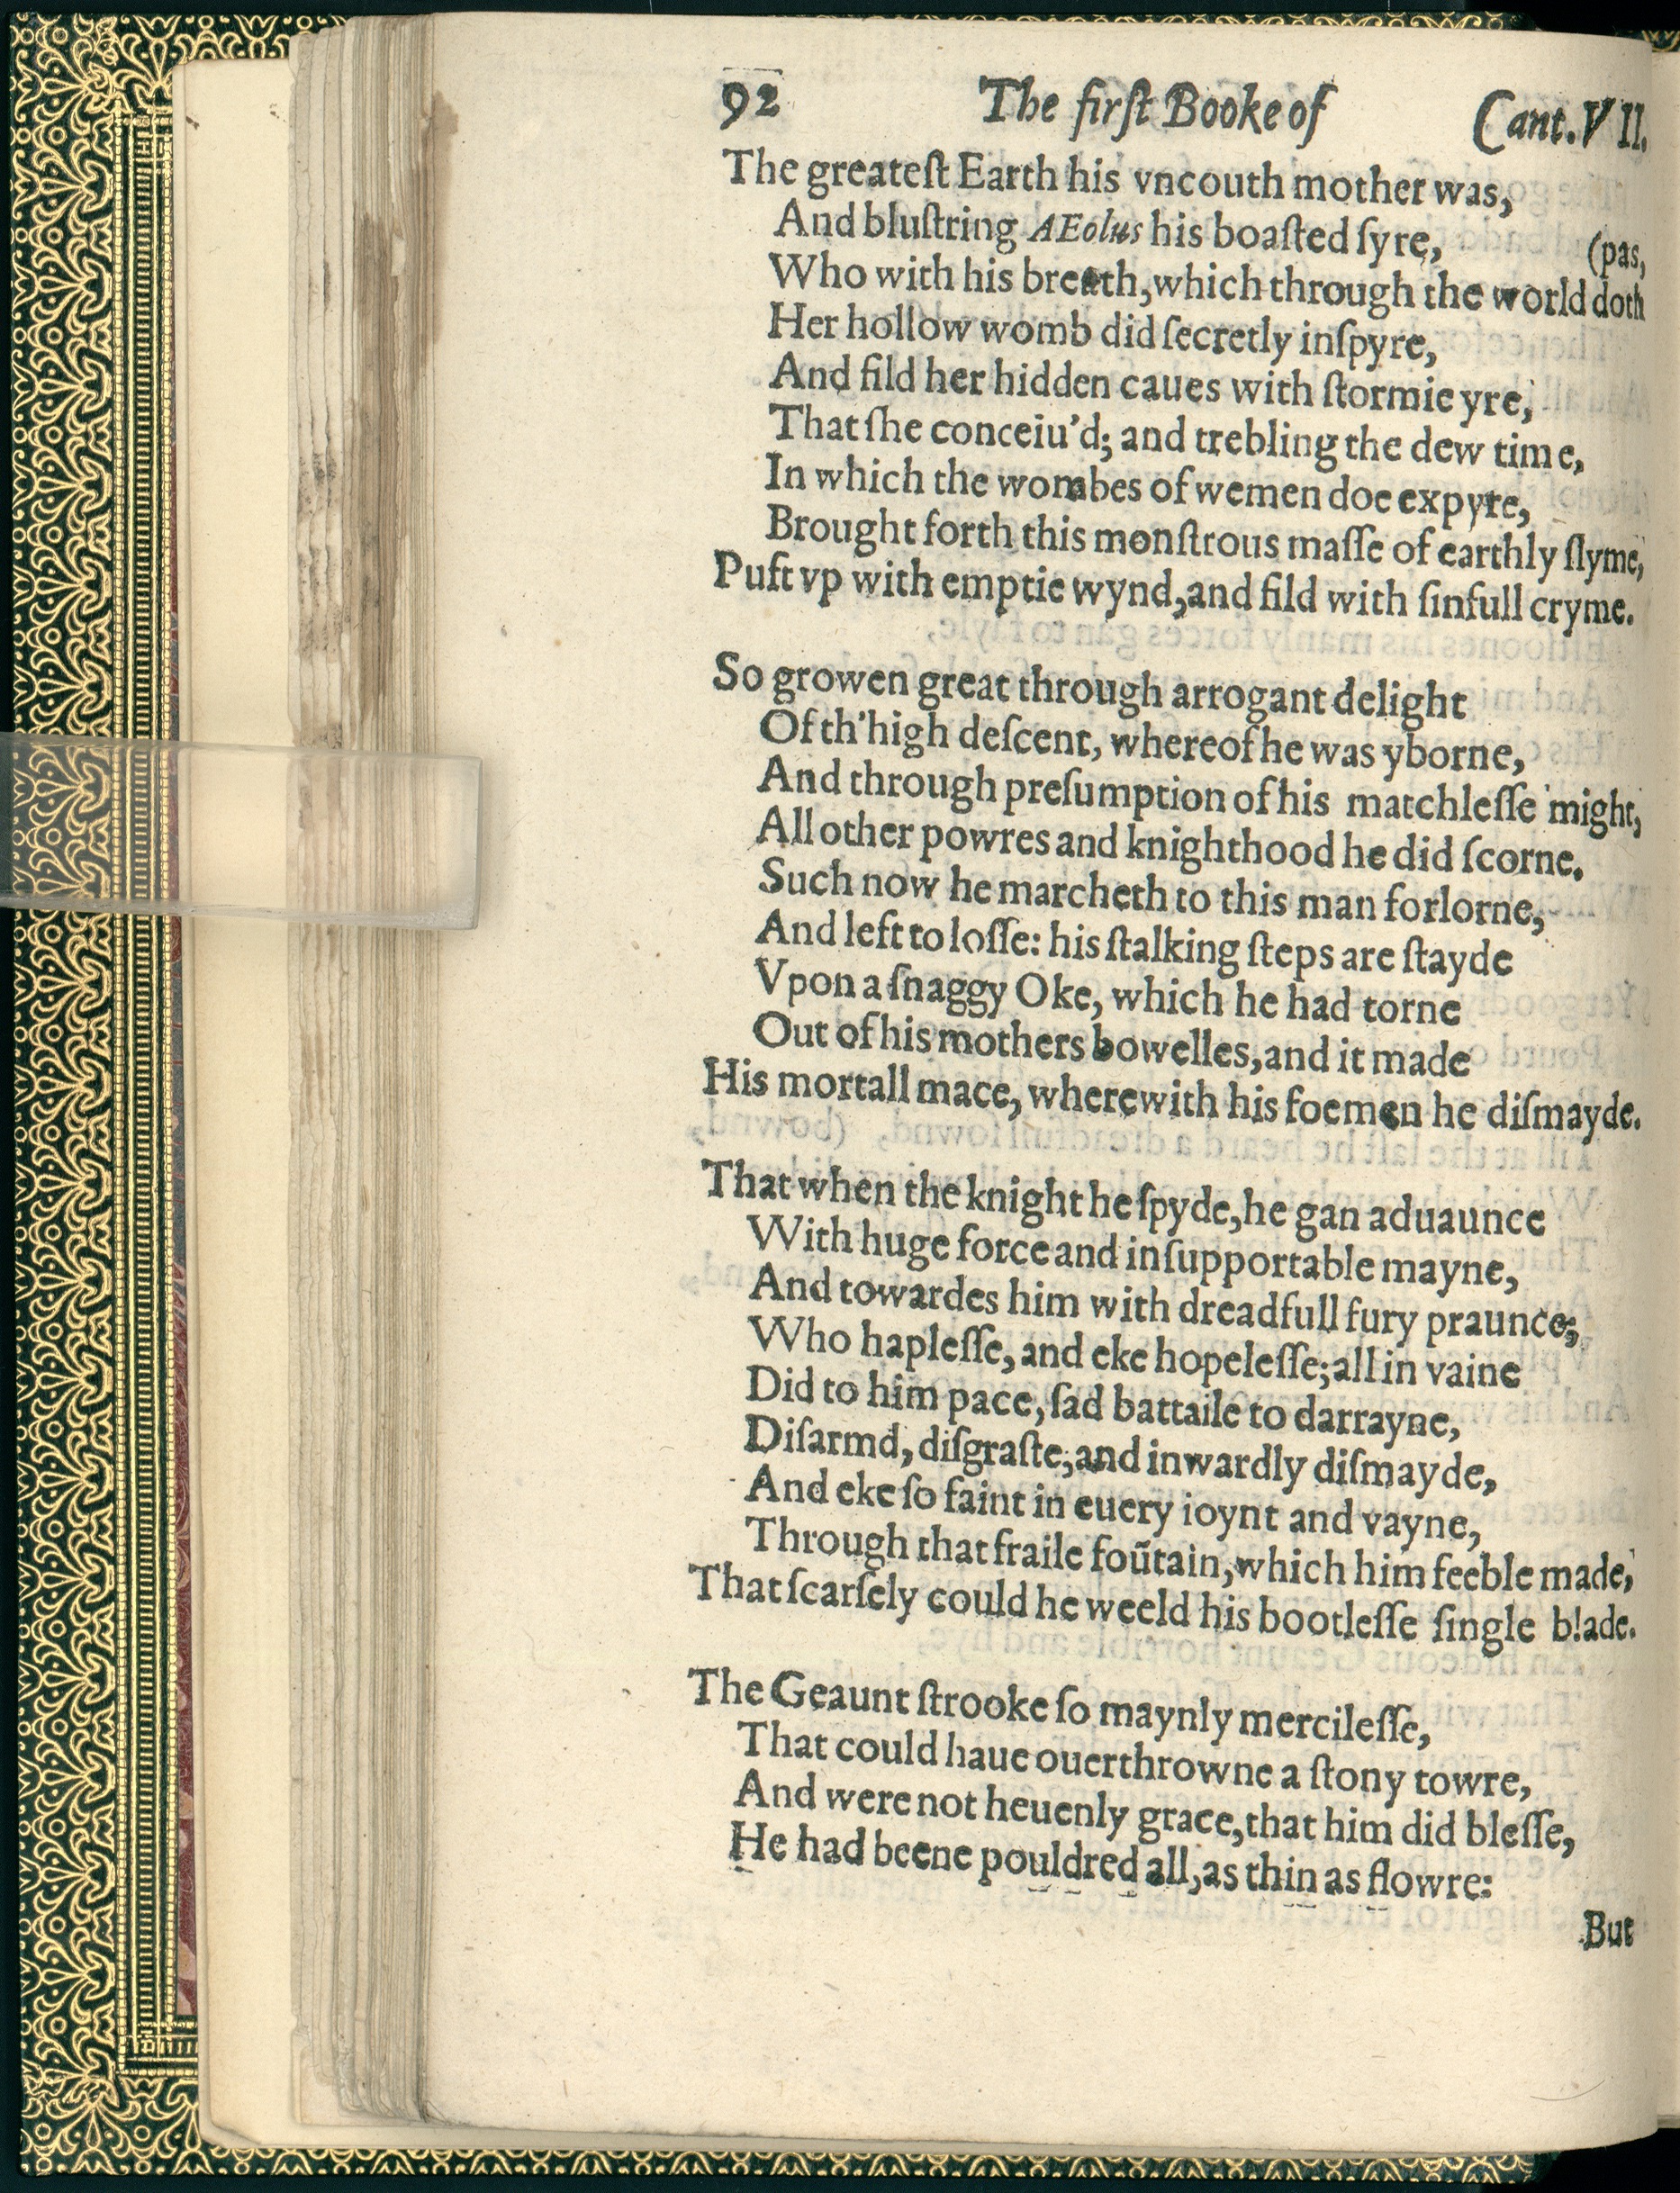 92 The firſt Booke of Cant. VII.
The greateſt Earth his vncouth mother was,
And bluſtring AEolus his boaſted ſyre,
(pas,
Who with his breath, which through the world doth
Her hollow womb did ſecretly inſpyre,
And fild her hidden caues with ſtormie yre,
That ſhe conceiu'd; and trebling the dew time,
In which the wombes of wemen doe expyre,
Brought forth this monſtrous maſſe of earthly ſlyme,
Puft vp with emptie wynd, and fild with ſinfull cryme.
So growen great through arrogant delight
Of th'high deſcent, whereof he was yborne,
And through preſumption of his matchleſſe might,
All other powres and knighthood he did ſcorne.
Such now he marcheth to this man forlorne,
And left to loſſe: his ſtalking ſteps are ſtayde
Vpon a ſnaggy Oke, which he had torne
Out of his mothers bowelles, and it made
His mortall mace, wherewith his foemen he diſmayde.
That when the knight he ſpyde, he gan aduaunce
With huge force and inſupportable mayne,
And towardes him with dreadfull fury praunce;
Who hapleſſe, and eke hopeleſſe; all in vaine
Did to him pace, ſad battaile to darrayne,
Diſarmd, diſgraſte, and inwardly diſmayde,
And eke ſo faint in euery ioynt and vayne,
Through that fraile foũtain, which him feeble made,
That ſcarſely could he weeld his bootleſſe ſingle blade.
The Geaunt ſtrooke ſo maynly mercileſſe,
That could haue ouerthrowne a ſtony towre,
And were not heuenly grace, that him did bleſſe,
He had beene pouldred all, as thin as flowre:
But